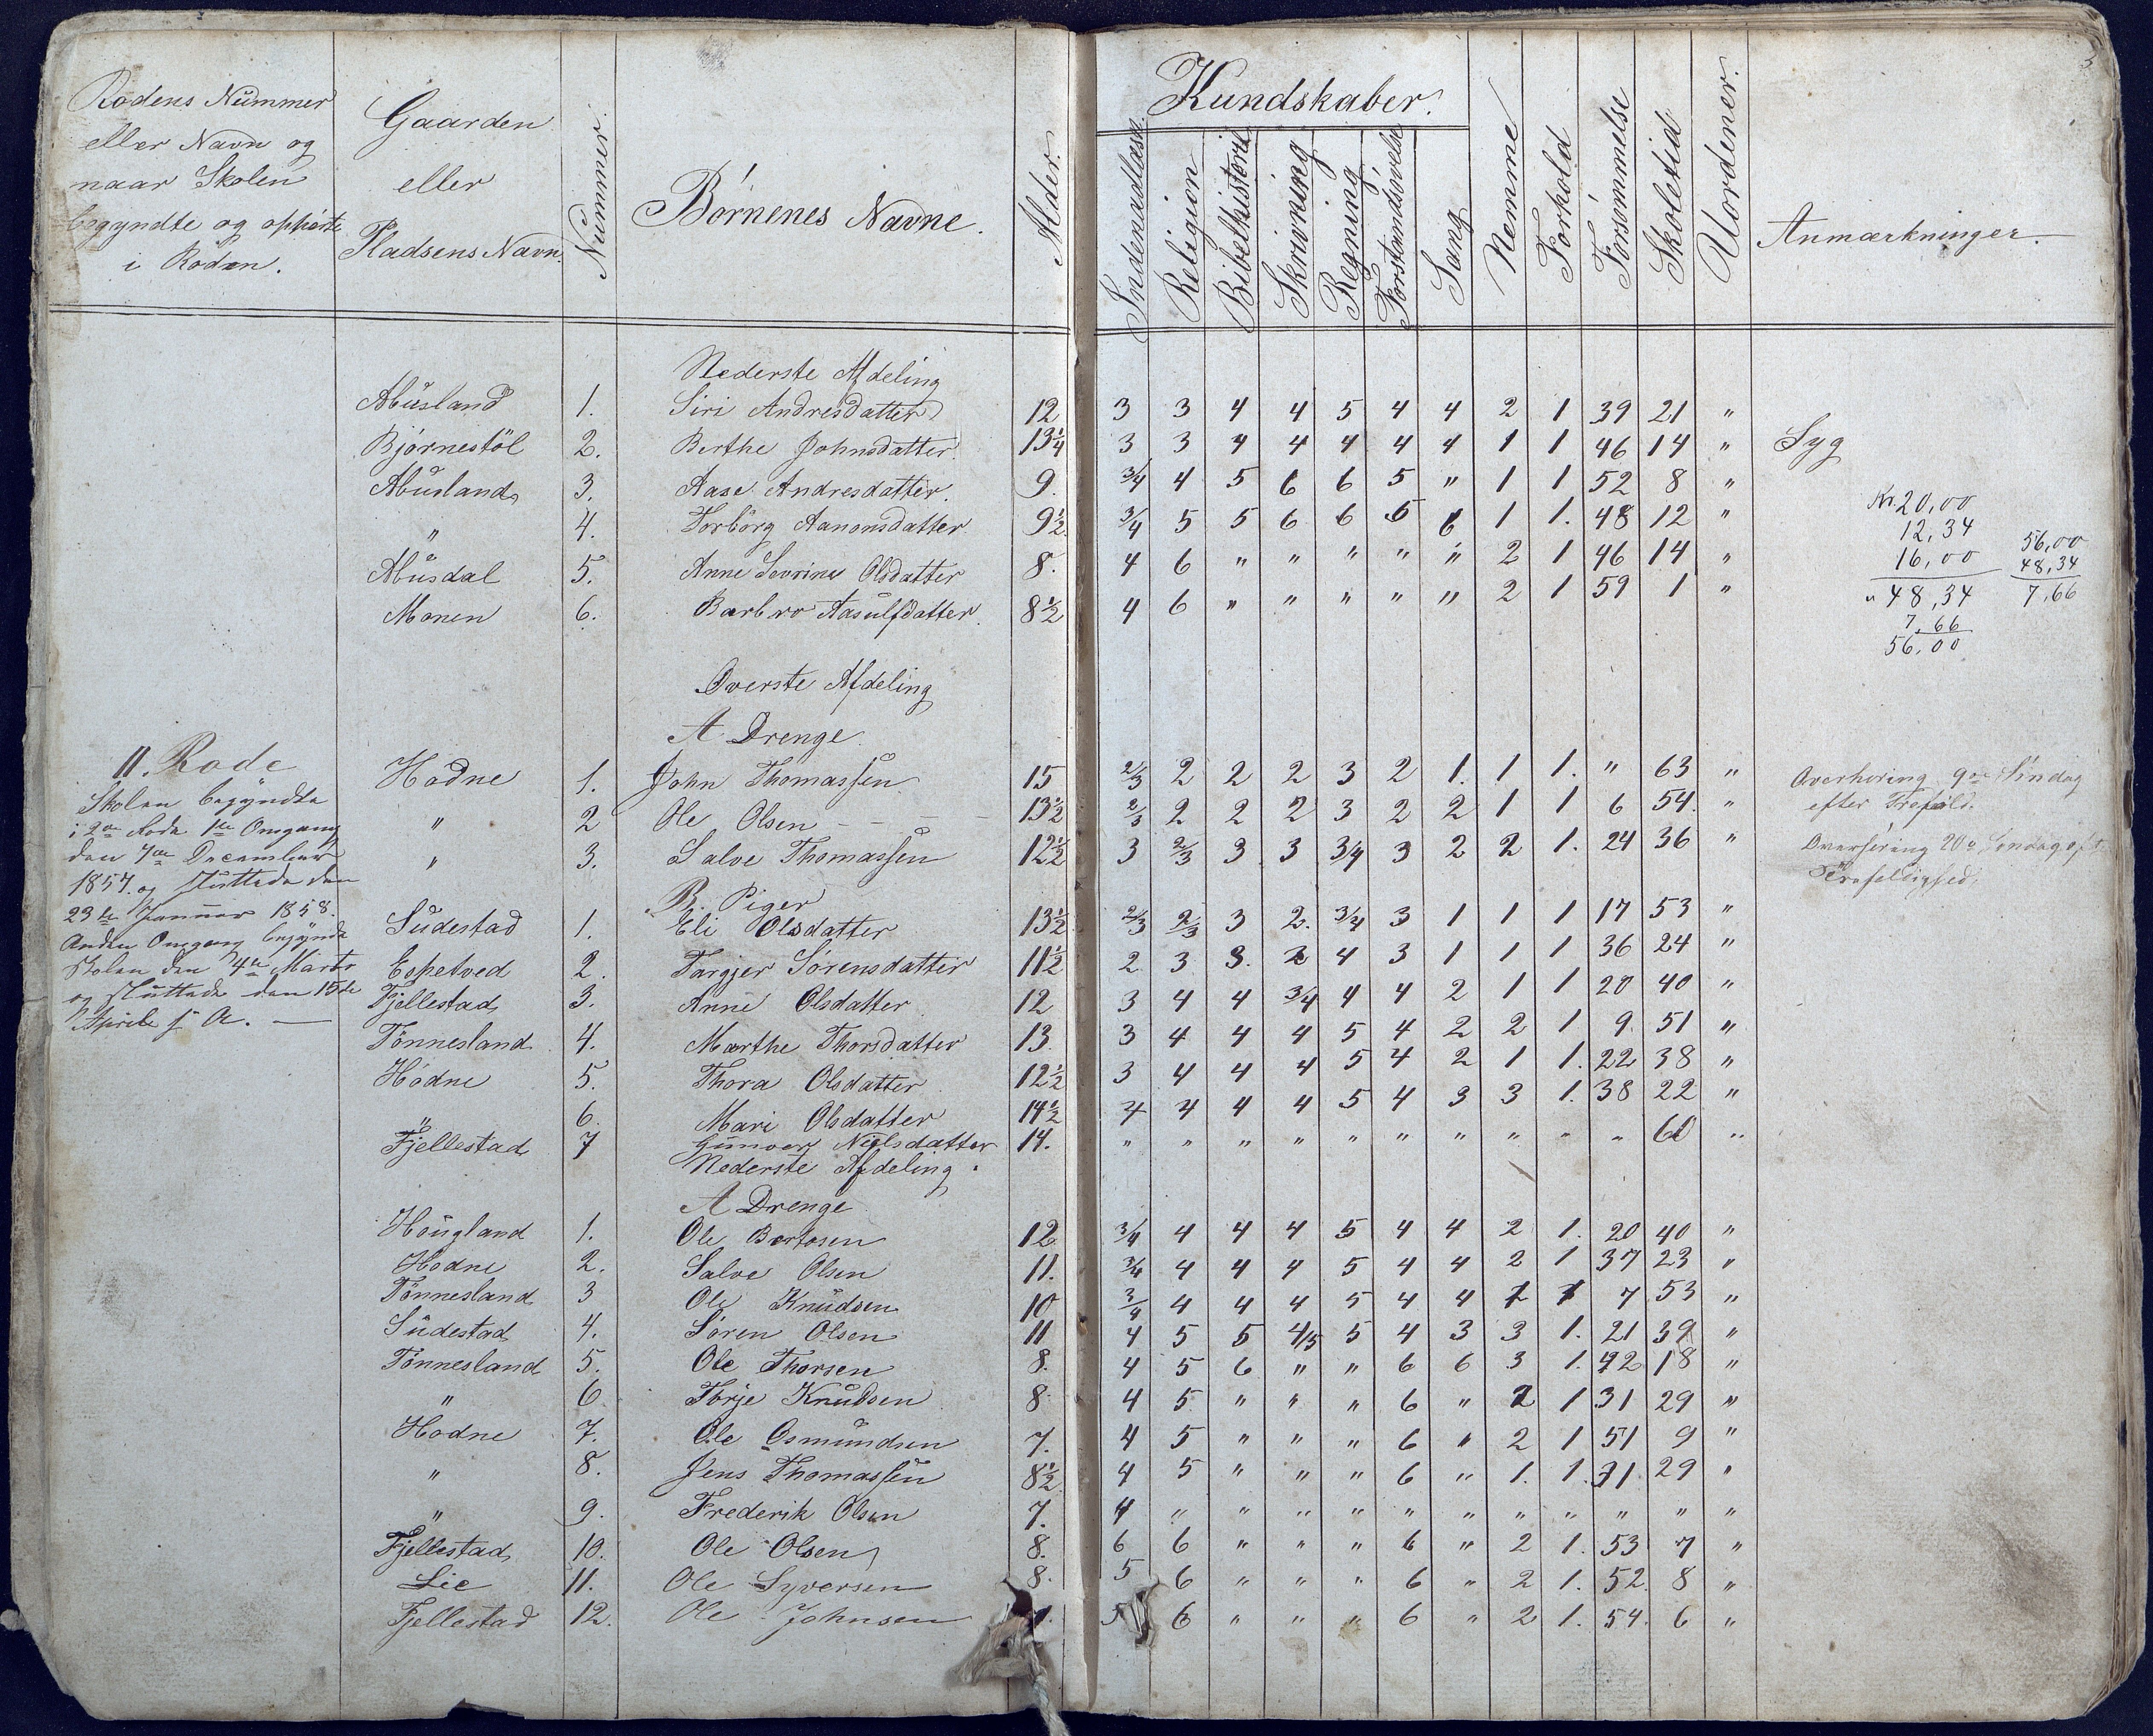 Rodens Nummer
eller Navn og
naar Skolen
begyndte og ophørte
i Roden.
Gaarden
eller
Pladsens Navn.
Nummer.
Børnenes Navne.
Alder.
Kundskaber.
Indenadlæsn.
Religion
Bibelhistorie
Skrivning
Regning
Forstandsøvelse
Sang
Nemme
Forhold
Forsømmelse
Skoletid
Uordener.
Anmærkninger.
Nederste Afdeling
Abusland 1. Siri Andresdatter 12 3 3 4 4 5 4 4 2 1 39 21 "
Bjørnestøl 2. Berthe Johnsdatter. 13¼ 3 3 4 4 4 4 4 1 1 46 14 " Syg
Abusland 3. Aase Andresdatter. 9. 3/4 4 5 6 6 5 " 1 1 52 8 "
" 4. Torborg Aanonsdatter 9½ 3/4 5 5 6 6 5 6 1 1. 48 12 "
Abusdal 5. Anne Sevrine Olsdatter 8. 4 6 " " " " " 2 1 46 14 "
Monen 6. Barbro Aasulfdatter. 8½ 4 6 " " " " " 2 1 59 1 "
Kr. 20,00
12,34
16,00
" 48,34
7,66
56,00
56,00
48,34
7,66
Øverste Afdeling
A Drenge.
II. Rode
Skolen begyndte
i 2den Rode 1ste Omgang
den 7de December
1857. og sluttede den
23de Januar 1858.
Anden Omgang begyndte
Skolen den 4de Marts
og sluttede den 15de
Aprile s. A. —
Hodne 1. John Thomassen 15 2/3 2 2 2 3 2 1. 1 1. " 63 " Overhøring 9de Søndag
efter Trefold.
" 2 Ole Olsen - - - - 13½ 2/3 2 2 2 3 2 2 1 1 6 54. "
" 3. Salve Thomassen 12½ 3 2/3 3 3 3/4 3 2 2 1. 24 36 " Overhøring 20de Søndag eft.
Trefoldighed.
B. Piger
Sudestad 1. Eli Olsdatter 13½ 2/3 2/3 3 2. 3/4 3 1 1 1 17 53 "
Espetved 2. Targjer Sørensdatter 11½ 2 3 3. 2 4 3 1 1 1 36 24 "
Fjellestad 3. Anne Olsdatter 12 3 4 4 3/4 4 4 2 1 1 20 40 "
Tønnesland 4. Marthe Thorsdatter 13. 3 4 4 4 5 4 2 2 1 9. 51 "
Hodne 5. Thora Olsdatter 12½ 3 4 4 4 5 4 2 1 1. 22 38 "
" 6. Mari Olsdatter 14½ 4 4 4 4 5 4 3 3 1. 38 22 "
Fjellestad 7 Gunvor Nielsdatter 14. " " " " " " " " " " 60 "
Nederste Afdeling.
A Drenge
Hougland 1. Ole Bertosen 12 3/4 4 4 4 5 4 4 2 1. 20 40 "
Hodne 2. Salve Olsen 11. 3/4 4 4 4 5 4 4 2 1 37 23 "
Tønnesland 3 Ole Knudsen 10 3/4 4 4 4 5 4 4 1 1 7 53 "
Sudestad 4. Søren Olsen 11 4 5 5 4/5 5 4 3 3 1. 21 39 "
Tønnesland 5. Ole Thorsen 8. 4 5 6 " " 6 6 3 1. 42 18 "
" 6. Torje Knudsen 8 4 5 " " " 6 " 2 1 31 29 "
Hodne 7. Ole Osmundsen 7. 4 5 " " " 6 " 2 1 51 9 "
" 8. Jens Thomassen 8½ 4 5 " " " 6 " 1. 1. 31. 29 "
" 9. Frederik Olsen 7. 4 " " " " " " " " " " "
Fjellestad 10. Ole Olsen 8. 6 6 " " " 6 " 2 1. 53 7 "
Lie 11. Ole Syversen 8. 5 6 " " " 6 " 2 1. 52. 8 "
Fjellestad 12. Ole Johnsen 5 6 " " " 6 " 2 1. 54. 6 "